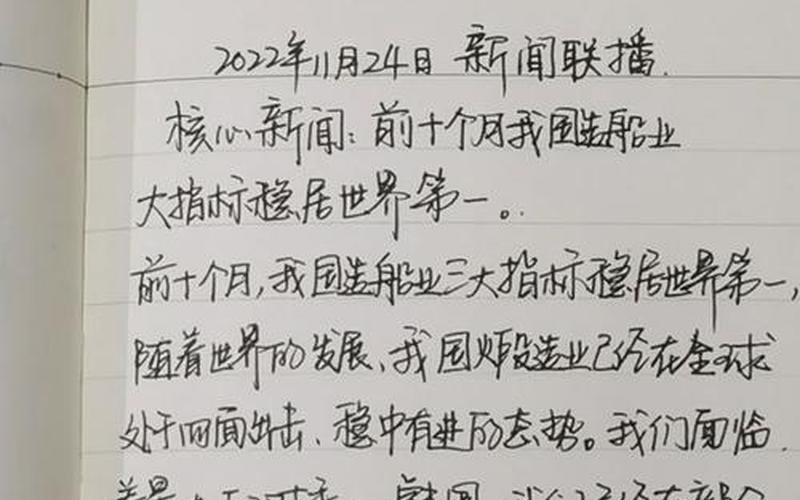 2022年11月24日 新闻联播.
核心新闻:前十个月我国造船业
大指标稳居世界第一。
前十个月,我国造船业三大指标稳居世界第一,
随着世界的发展、我国造业已经在全球
处于四面出击、稳中有进的态势。我们面临.